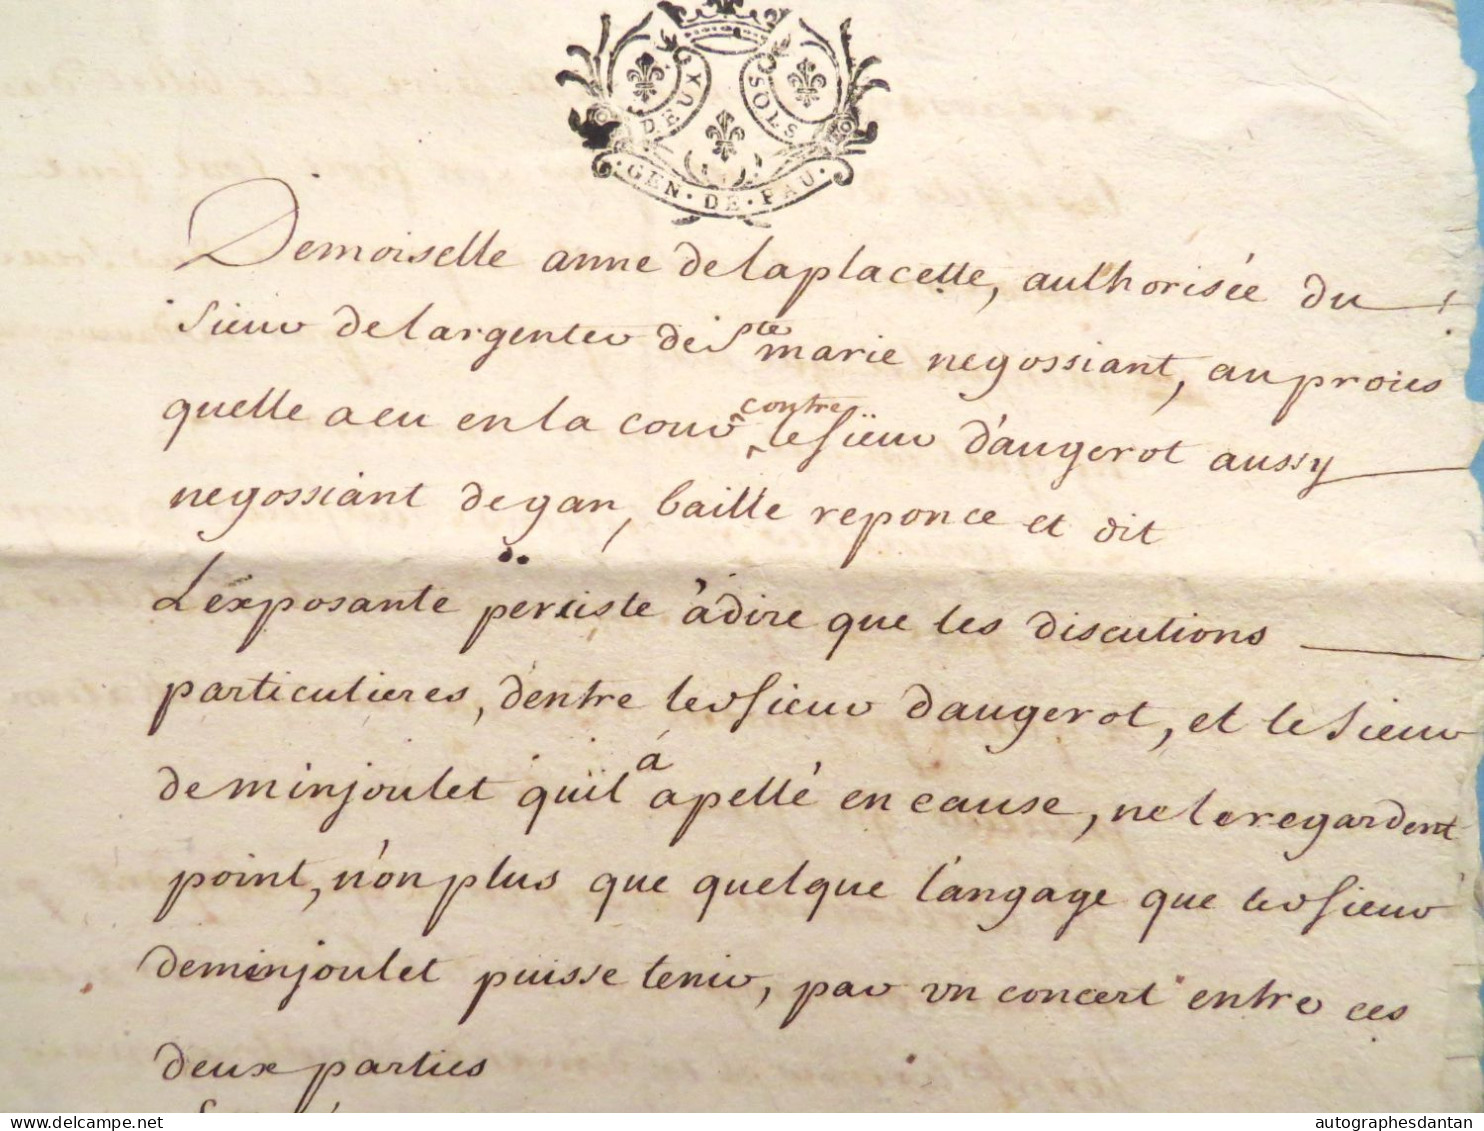 DEUX SOLS
GEN · DE · PAU ·
Demoiselle anne de laplacette, authorisée du
sieur delargenter de Ste marie negossiant, au proies
quelle a eu en la cour contre le sieur d'augerot aussy
negossiant de gan, baille reponce et dit
L'exposante persiste à dire que les discutions
particulieres, d'entre le sieur daugerot, et le sieur
deminjoulet quil á apellé en cause, ne le regardent
point, n'on plus que quelque l'angage que le sieur
deminjoulet puisse tenir, par un concert entre ces
deux parties
autographesdantan